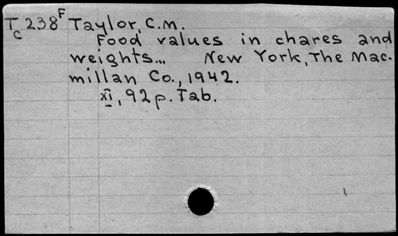 T 238F Taylor, C.M.
C
Food values in chares and
weights... New York, The Mac-
millan Co., 1942.
XI, 92 p. Tab.